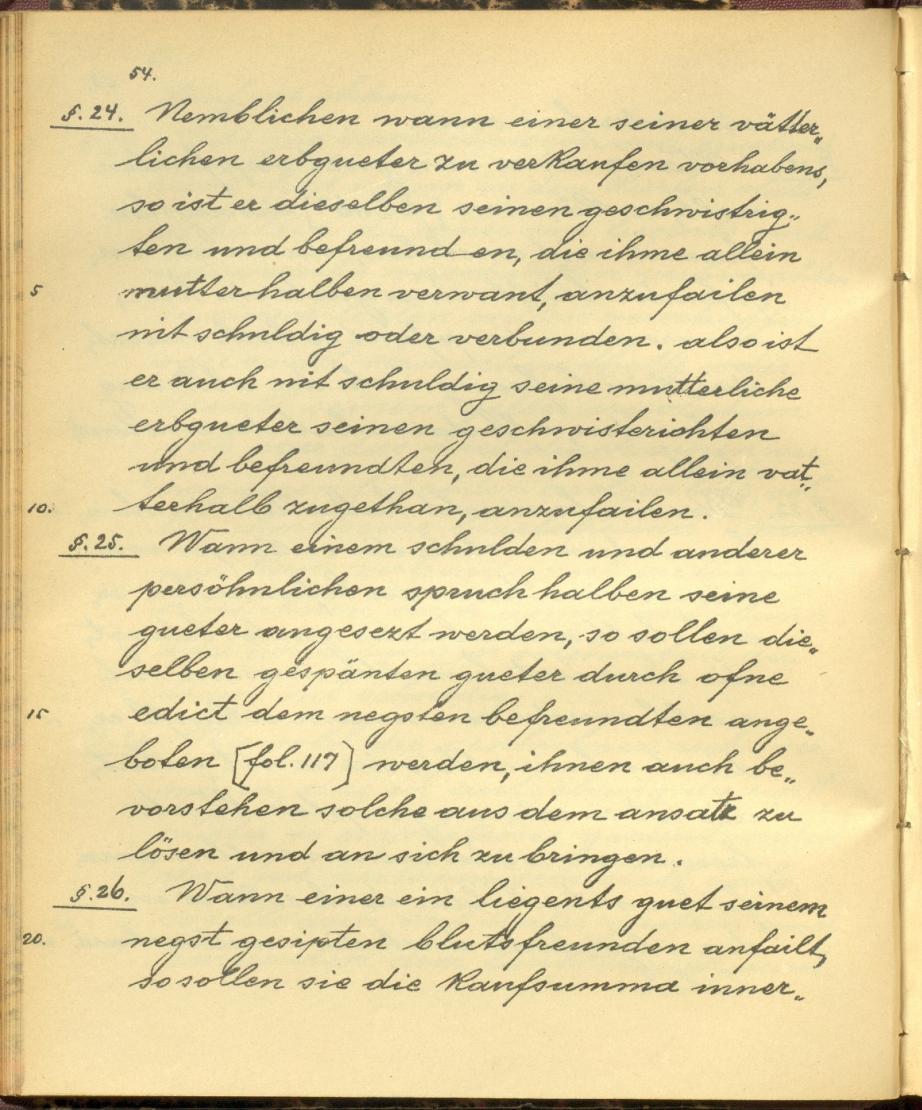 54.
§.24. Nemblichen wann einer seiner vätter„
lichen erbgueter zu verkaufen vorhabens,
so ist er dieselben seinen geschwistrig„
ten und befreunden, die ihme allein
5 mutterhalben verwant, anzufailen
nit schuldig oder verbunden. also ist
er auch nit schuldig seine mutterliche
erbgueter seinen geschwisterichten
und befreundten, die ihme allein vat„
10. terhalb zugethan, anzufailen.
§.25. Wann einem schulden und anderer
persöhnlichen spruch halben seine
gueter angesezt werden, so sollen die„
selben gespänten gueter durch ofne
15 edict dem negsten befreundten ange„
boten [fol. 117] werden, ihnen auch be„
vorstehen solche aus dem ansatz zu
lösen und an sich zu bringen.
§.26. Wann einer ein liegents guet seinem
20. negst gesipten blutsfreunden anfailt,
so sollen sie die kaufsumma inner„